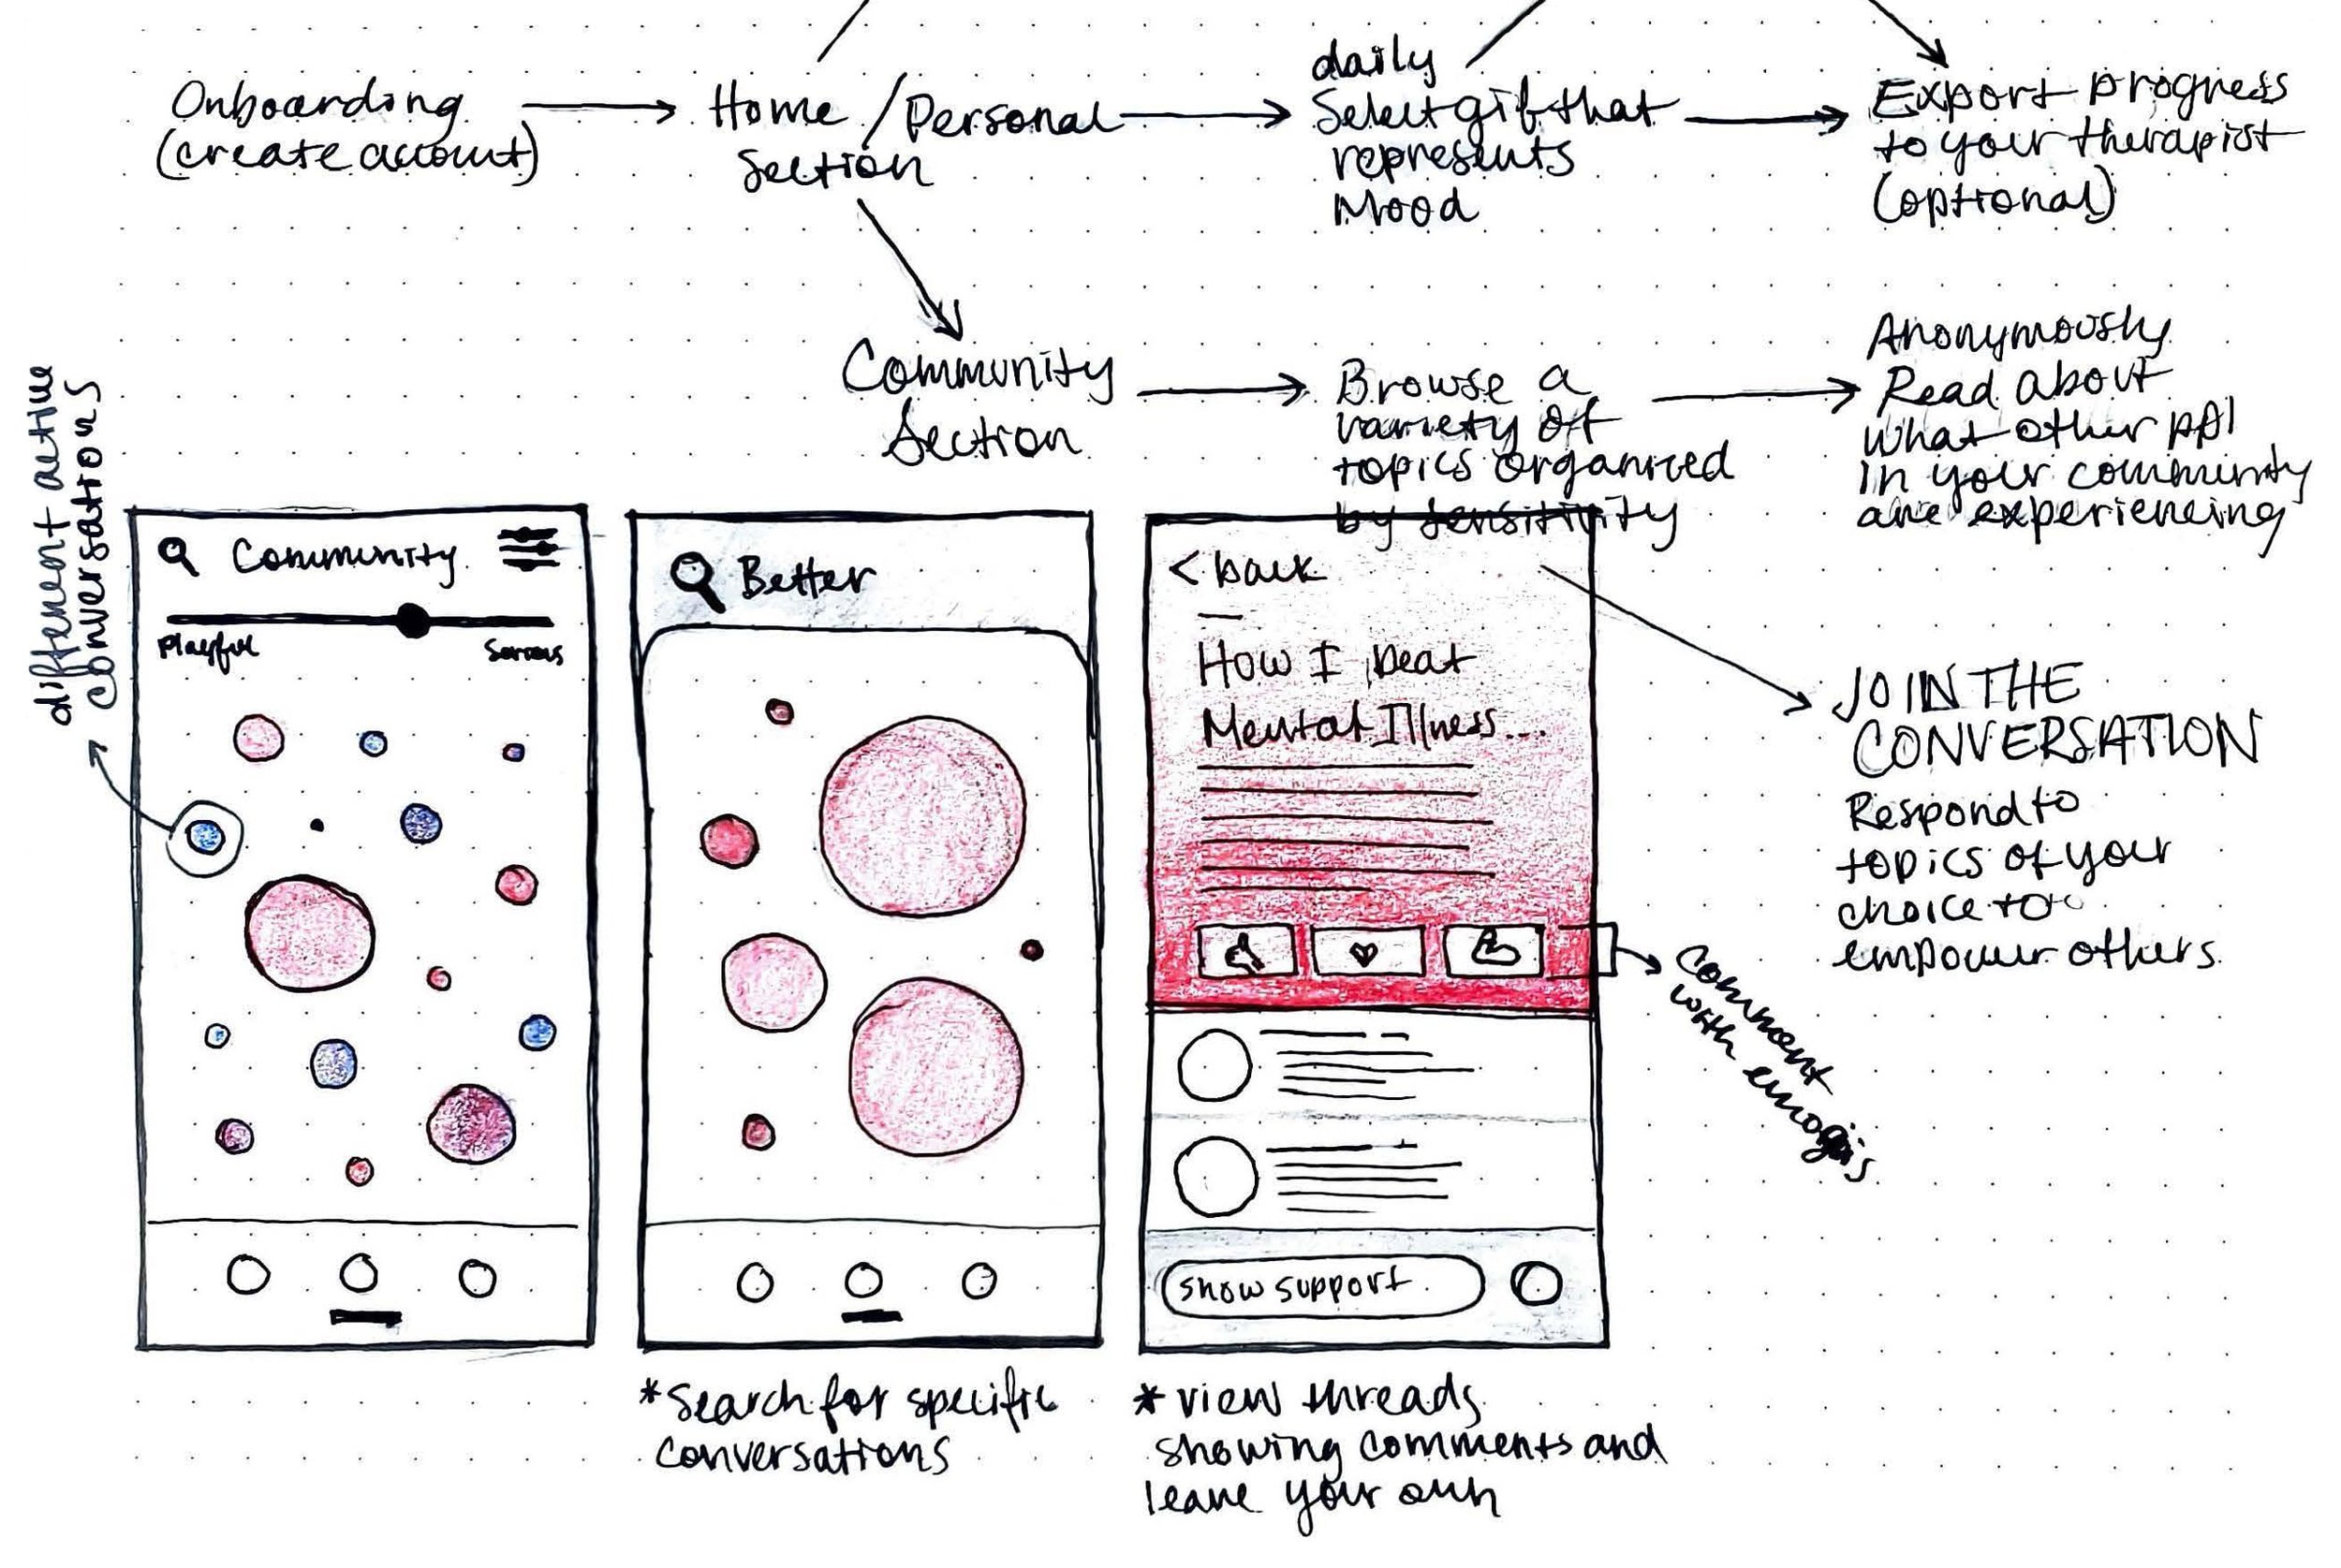 Onboarding
(create account)
Home / Personal
Section
daily
Select gif that
represents
Mood
Export progress
to your therapist
(optional)
Community
Section
Browse a
variety of
topics organized
by sensitivity
Anonymously
Read about
what other ppl
in your community
are experiencing
JOIN THE
CONVERSATION
Respond to
topics of your
choice to
empower others
different active
conversations
Community
Playful
Serious
Better
< back
How I beat
Mental Illness...
comment
with emojis
show support
*Search for specific
conversations
* view threads
showing comments and
leave your own